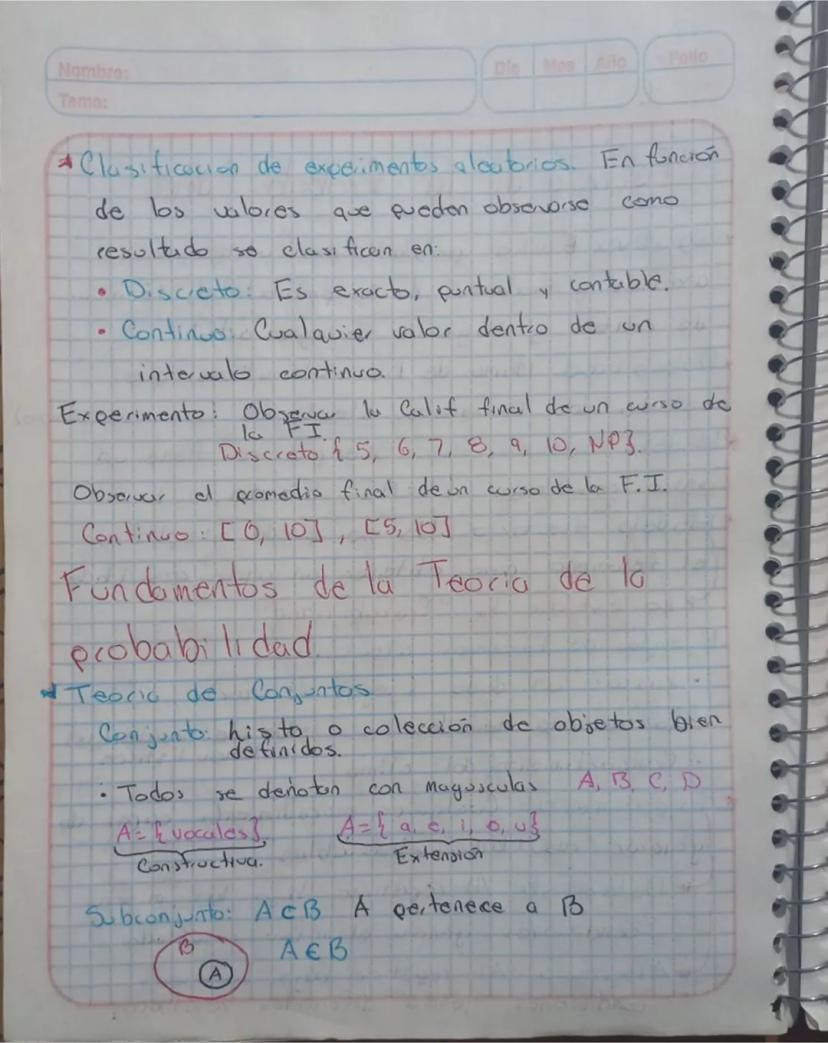 Nombre:
Tema:
Día Mes Año
Folio
Clasificacion de experimentos aleatorios. En función
de los valores que pueden observarse como
resultado se clasifican en:
• Discreto: Es exacto, puntual y contable.
• Continuo: Cualquier valor dentro de un
intervalo continuo.
Experimento: Observar la Calif final de un curso de
la F.I.
Discreto { 5, 6, 7, 8, 9, 10, NP}.
Observar el promedio final de un curso de la F.I.
Continuo: [0, 10], [5, 10]
Fundamentos de la Teoria de la
probabilidad.
Teoria de Conjuntos
Conjunto: lista o colección de objetos bien
definidos.
• Todos se denotan con mayusculas A, B, C, D
A={vocales}. A={a, e, i, o, u}
Constructiva. Extensión
Subconjunto: A⊂B A pertenece a B
B A A∈B